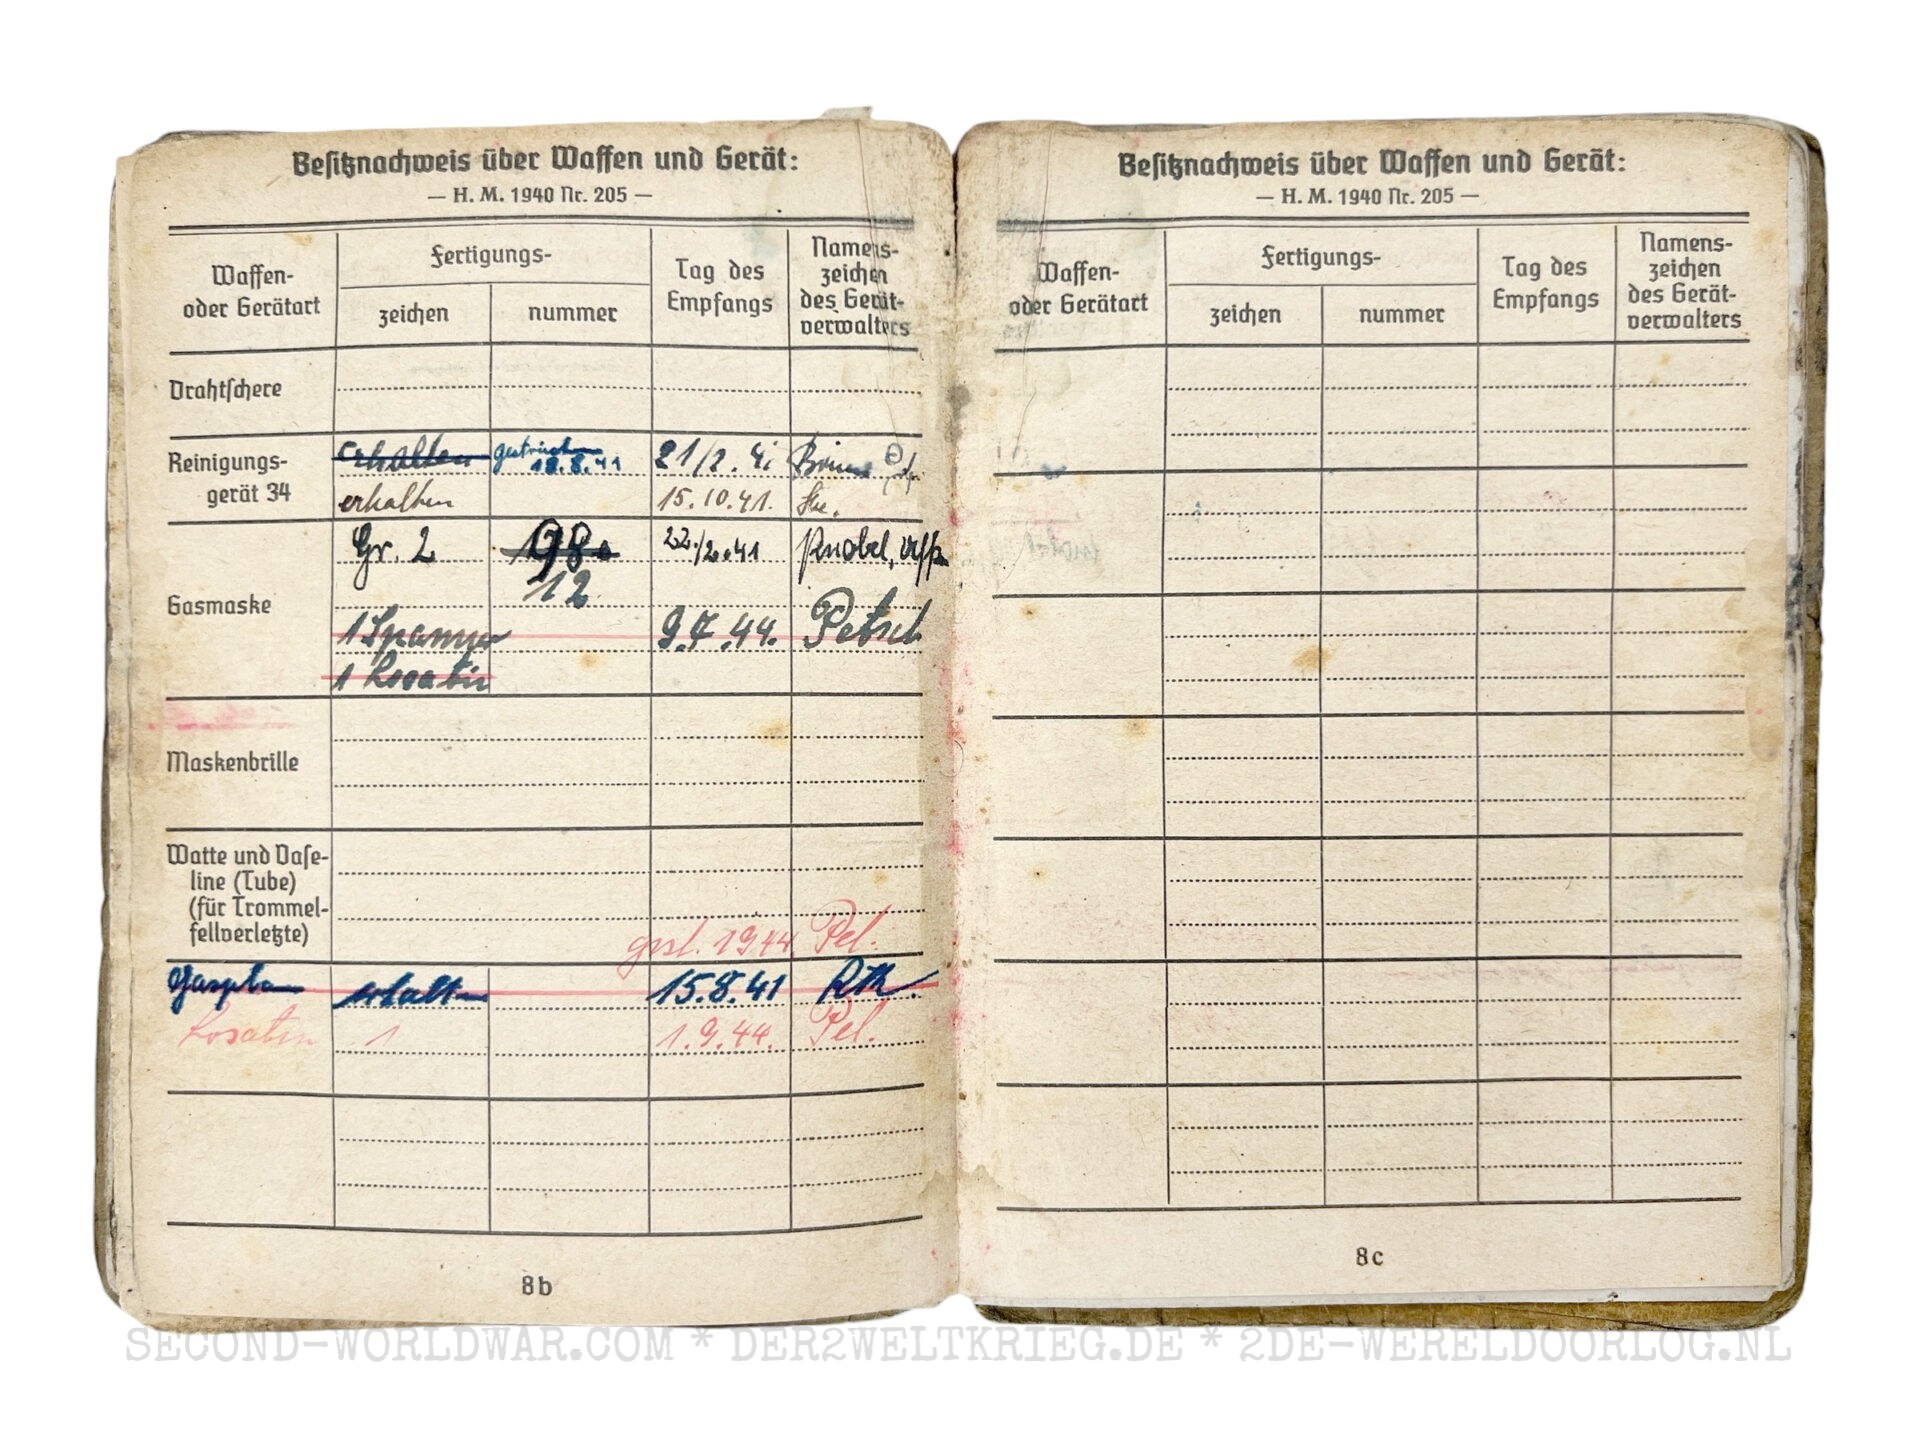 Besitznachweis über Waffen und Gerät:
— H. M. 1940 Nr. 205 —
Waffen- oder Gerätart
Fertigungs-
zeichen
nummer
Tag des Empfangs
Namens-
zeichen
des Gerät-
verwalters
Drahtschere
Reinigungs- erhalten gestrichen 18.8.41 21/2. 41
gerät 34 erhalten 15.10.41.
Gasmaske
Gr. 2 98 22./2.41 Knobel, Uffz
12
1 Spanner 9.7.44. Petsch
1 Losatin
Maskenbrille
Watte und Vase-
line (Tube)
(für Trommel-
fellverletzte)
gest. 1944 Pel.
Gasplan erhalten 15.8.41
Losatin 1 1.9.44. Pel.
8b
Besitznachweis über Waffen und Gerät:
— H. M. 1940 Nr. 205 —
Waffen- oder Gerätart
Fertigungs-
zeichen
nummer
Tag des Empfangs
Namens-
zeichen
des Gerät-
verwalters
8c
SECOND-WORLDWAR.COM * DER2WELTKRIEG.DE * 2DE-WERELDOORLOG.NL